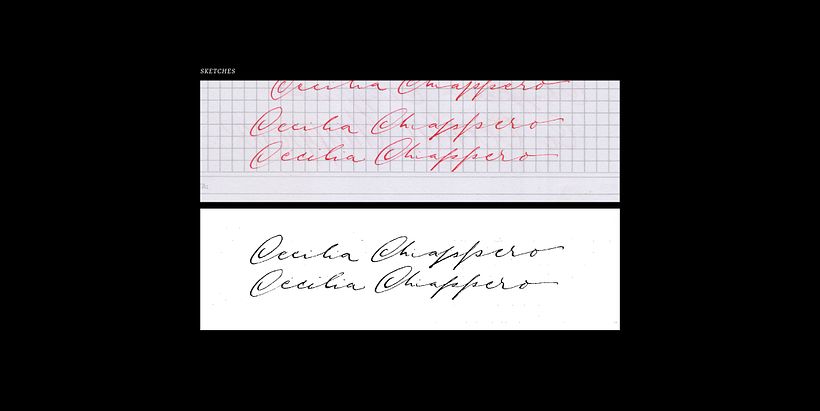 SKETCHES
Cecilia Chiappero
Cecilia Chiappero
Cecilia Chiappero
Cecilia Chiappero
Cecilia Chiappero